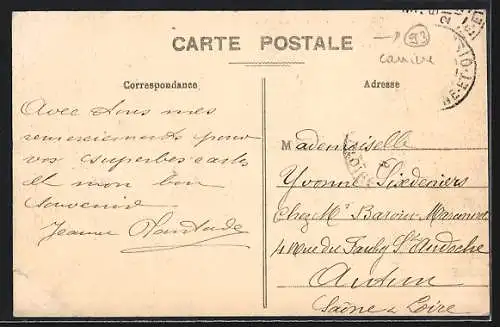 CARTE POSTALE
93
carrière
Correspondance
Adresse
Avec tous mes
remerciements pour
vos superbes cartes
et mon bon
souvenir
Jeanne
Mademoiselle
Yvonne
Chez Mr
4 Rue du Faubg St Andoche
Autun
Saône & Loire